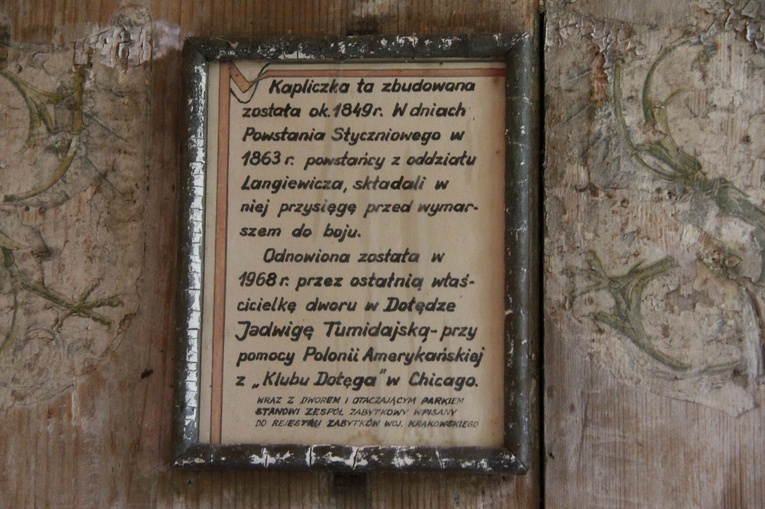 Kapliczka ta zbudowana
została ok. 1849 r. W dniach
Powstania Styczniowego w
1863 r. powstańcy z oddziału
Langiewicza, składali w
niej przysięgę przed wymar-
szem do boju.
Odnowiona została w
1968 r. przez ostatnią właś-
cicielkę dworu w Dołędze
Jadwigę Tumidajską - przy
pomocy Polonii Amerykańskiej
z „Klubu Dołęga" w Chicago.
WRAZ Z DWOREM I OTACZAJĄCYM PARKIEM
STANOWI ZESPÓŁ ZABYTKOWY WPISANY
DO REJESTRU ZABYTKÓW WOJ. KRAKOWSKIEGO